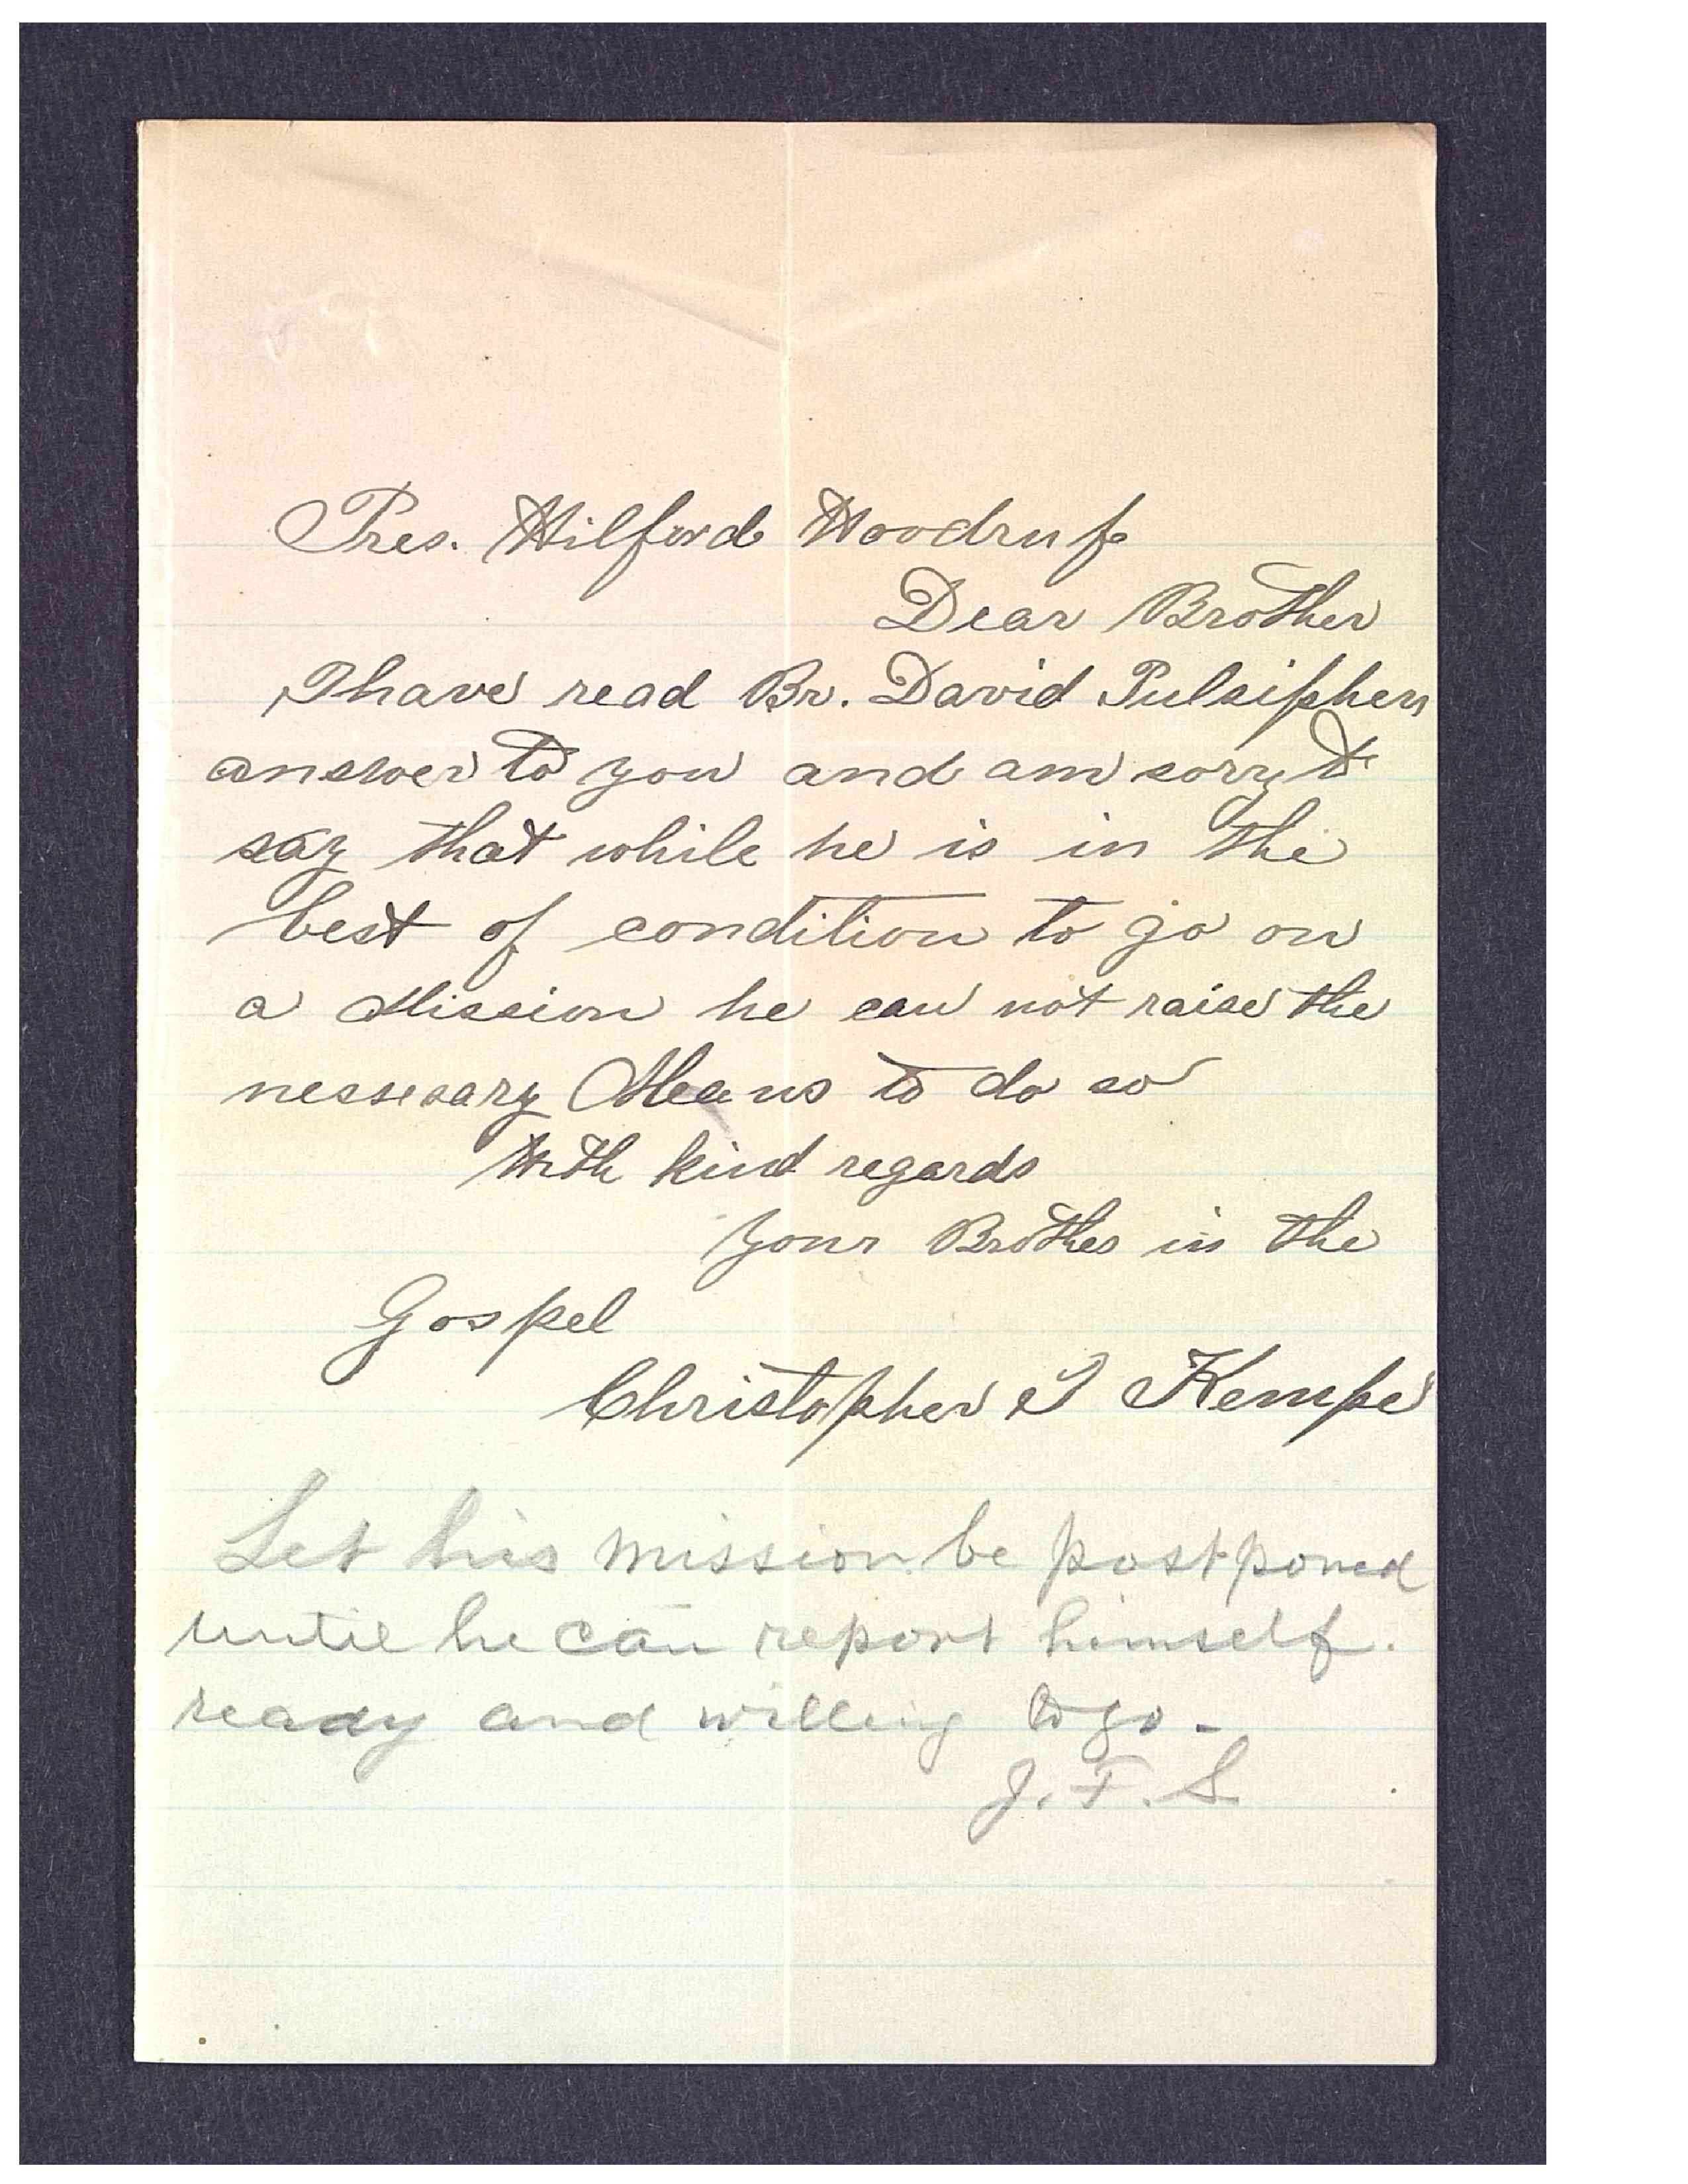 Pres. Wilford Woodruf
Dear Brother
I have read Br. David Pulsiphers
answer to you and am sorry to
say that while he is in the
best of condition to go on
a Mission he can not raise the
nessesary Means to do so
With kind regards
Your Brother in the
Gospel
Christopher J Kempe
Let his mission be postponed
until he can report himself.
ready and willing to go -
J. F. S